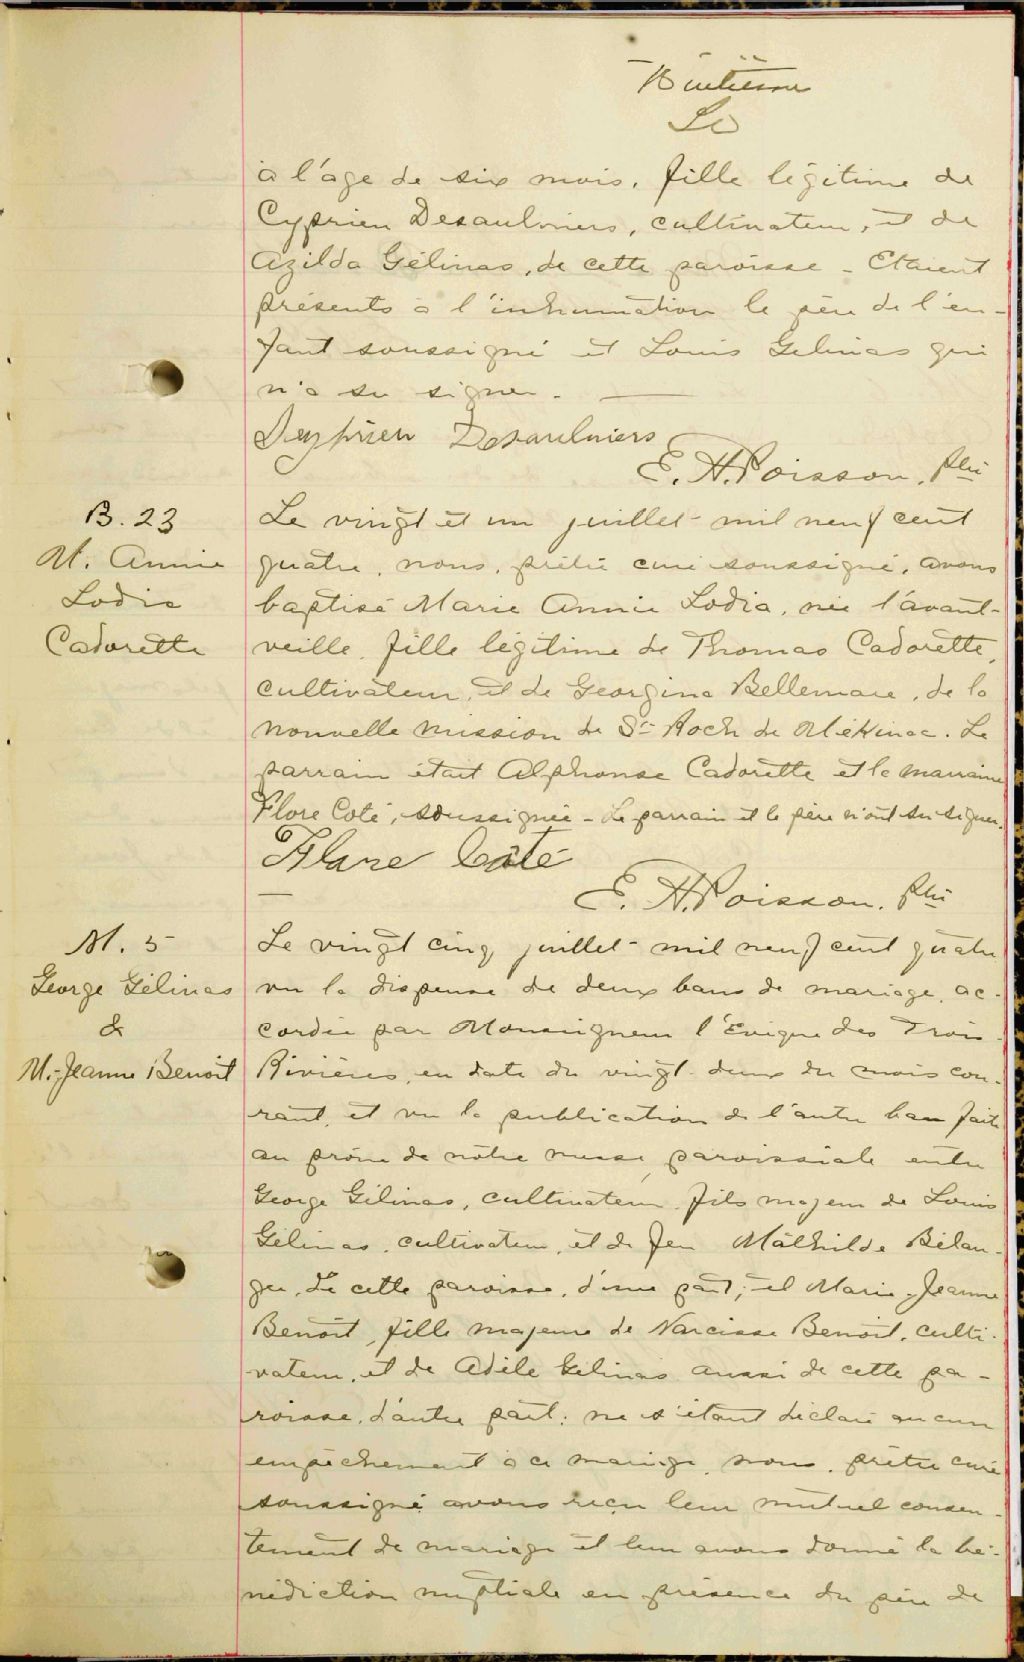 Huitième
à l'âge de six mois, fille légitime de
Cyprien Desaulniers, cultivateur, et de
Azilda Gélinas, de cette paroisse - Etaient
présents à l'inhumation le père de l'en-
fant soussigné et Louis Gelinas qui
n'a su signer. —
Cyprien Desaulniers
E. H. Poisson, Ptre
B. 23
M. Annie
Lodia
Cadorette
Le vingt et un juillet mil neuf cent
quatre, nous, prêtre curé soussigné, avons
baptisé Marie Annie Lodia, née l'avant-
veille, fille légitime de Thomas Cadorette,
cultivateur, et de Georgina Bellemare, de la
nouvelle mission de St Roch de Mékinac. Le
parrain était Alphonse Cadorette et la marraine
Flore Coté, soussignée - Le parrain et le père n'ont su signer.
Flore Coté
E. H. Poisson, Ptre
M. 5
George Gélinas
&
M.-Jeanne Benoit
Le vingt cinq juillet mil neuf cent quatre
vu la dispense de deux bans de mariage, ac-
cordée par Monseigneur l'Evêque des Trois-
Rivières, en date du vingt-deux du mois cou-
rant, et vu la publication de l'autre ban faite
au prône de nôtre messe paroissiale entre
George Gélinas, cultivateur, fils majeur de Louis
Gélinas, cultivateur, et de feu Mathilde Bélan-
ger, de cette paroisse, d'une part; et Marie-Jeanne
Benoit, fille majeure de Narcisse Benoit, culti-
vateur, et de Adèle Gélinas aussi de cette pa-
roisse, d'autre part; ne s'étant déclaré aucun
empêchement à ce mariage, nous, prêtre curé
soussigné avons reçu leur mutuel consen-
tement de mariage et leur avons donné la bé-
nédiction nuptiale en présence du père de